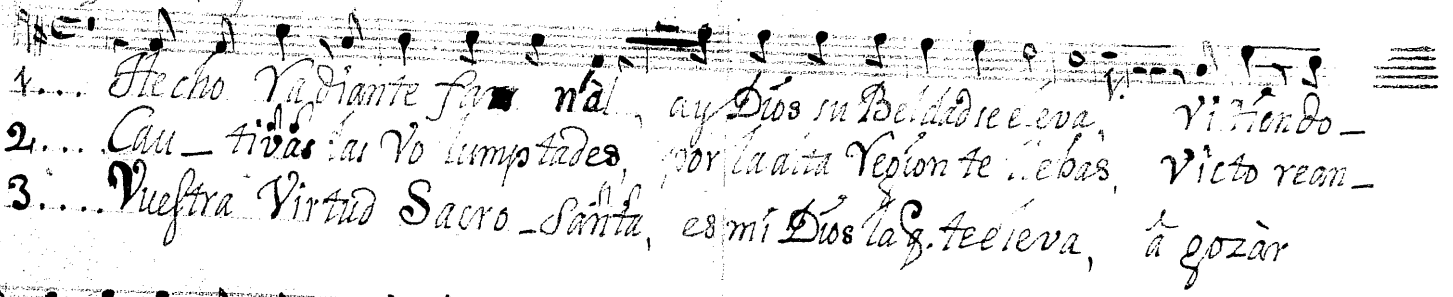 1... Hecho radiante fa nàl, ay Dios su Beldad se eleva, Vitiendo_
2.... Cau_tivas las Vo lumptades, por la alta Region te llebas, Victo rean_
3.... Vuestra Virtud Sacro_Santa, es mi Dios la q. te eleva, â gozàr